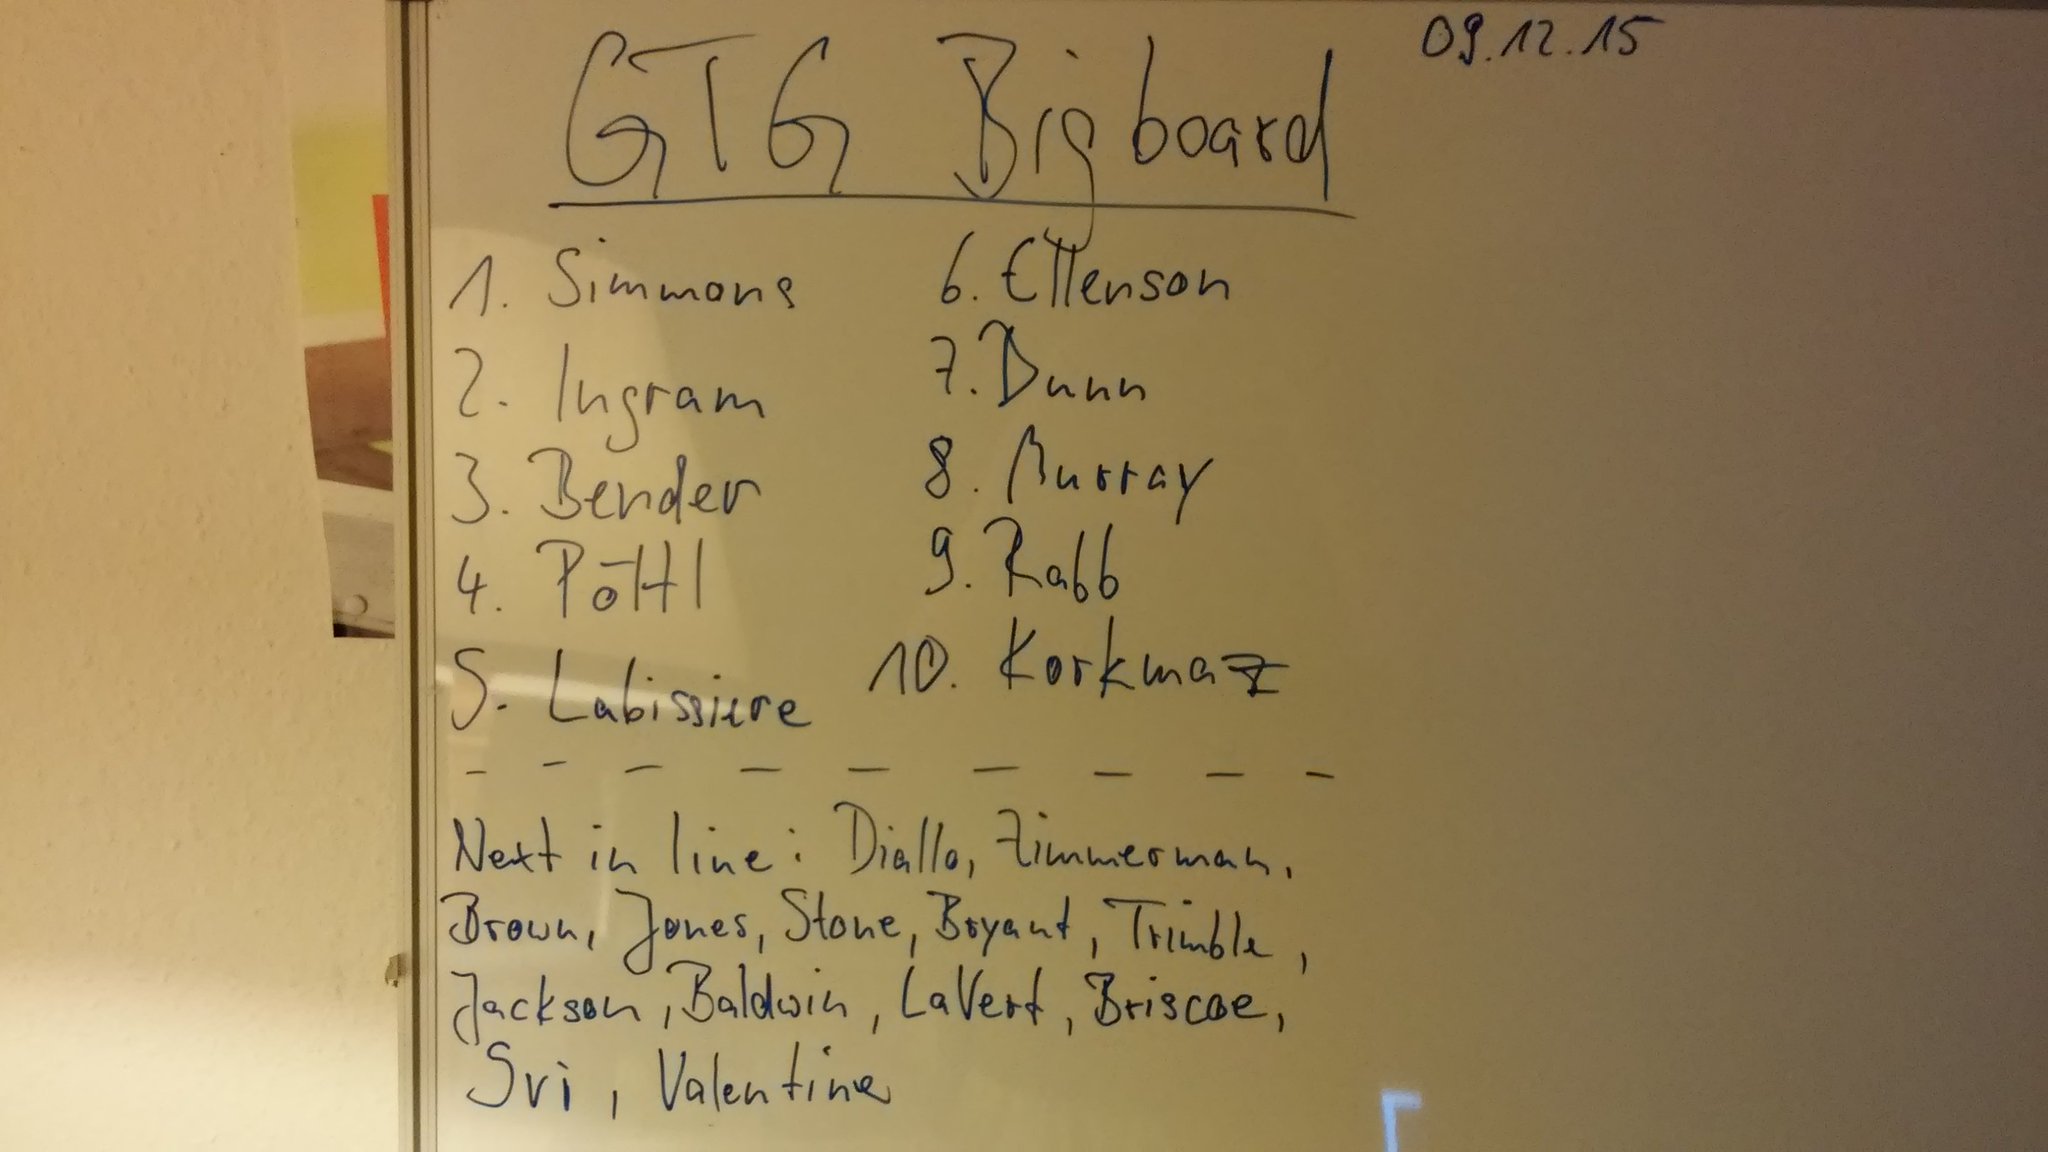 09.12.15
GTG Bigboard
1. Simmons
2. Ingram
3. Bender
4. Pöltl
5. Labissiere
6. Ellenson
7. Dunn
8. Murray
9. Rabb
10. Korkmaz
Next in line: Diallo, Zimmerman,
Brown, Jones, Stone, Bryant, Trimble,
Jackson, Baldwin, LaVert, Briscoe,
Svi, Valentine